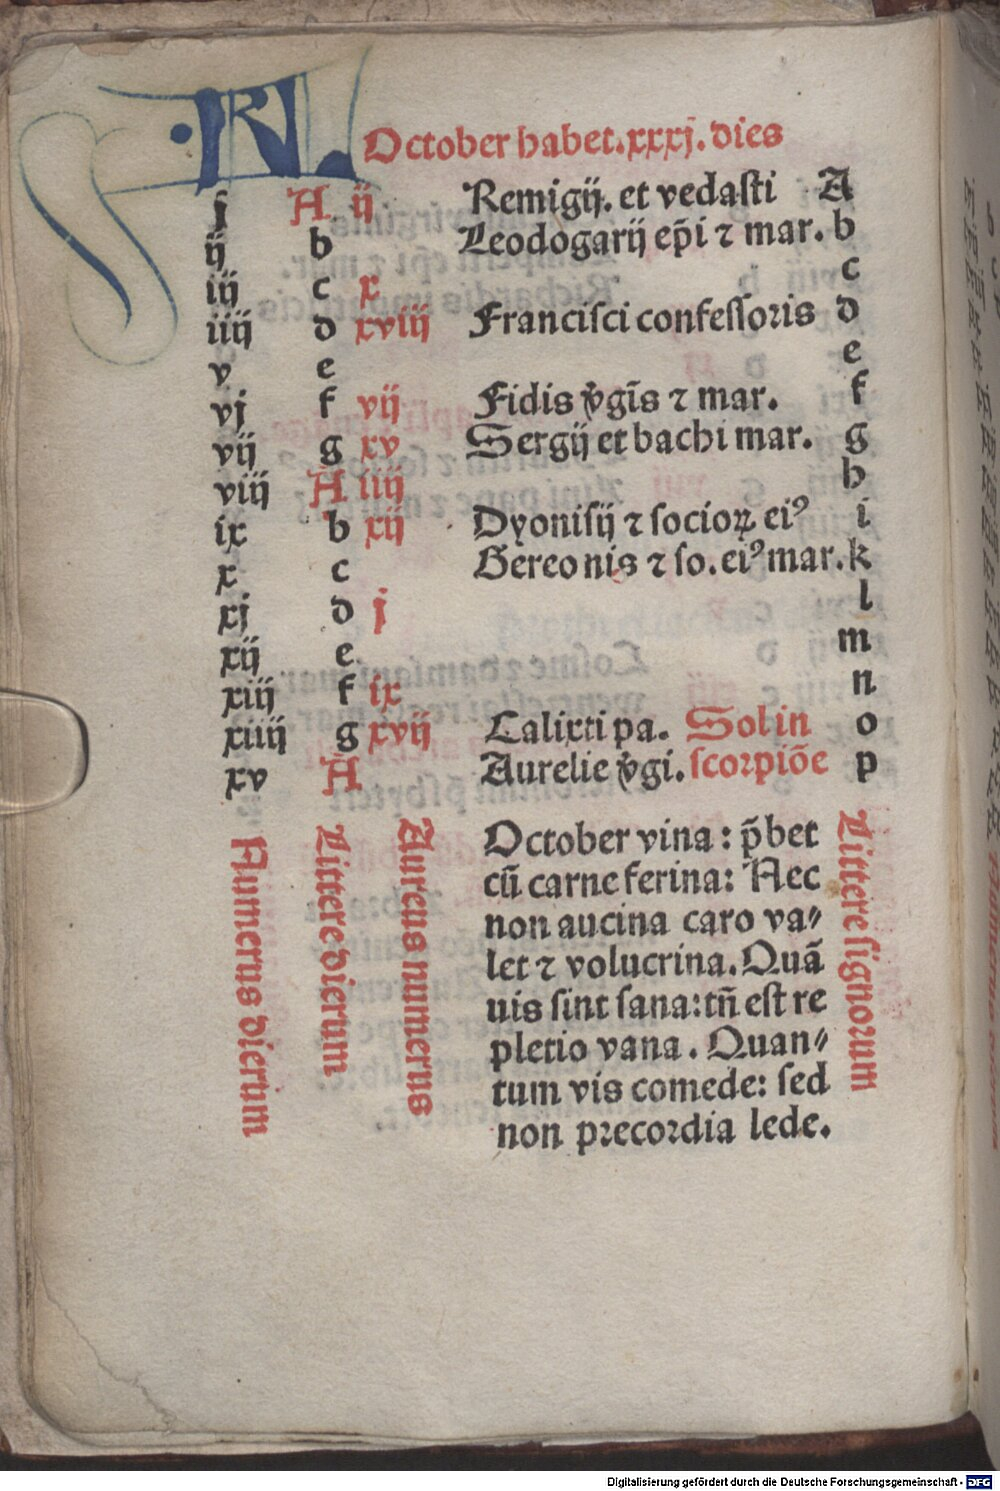 ·KL.
October habet.xxxj.dies
j A ij Remigij. et vedaſti A
ij b Leodogarij ep̄i ⁊ mar. b
iij c x c
iiij d xviij Franciſci confeſſoꝛis d
v e e
vj f vij Fidis v̄gīs ⁊ mar. f
vij g xv Sergij et bachi mar. g
viij A iiij h
ix b xij Dyoniſij ⁊ ſocioꝝ eiꝰ i
x c Gereonis ⁊ ſo.eiꝰ mar. k
xj d j l
xij e m
xiij f ix n
xiiij g xvij Calixti pa. Sol in o
xv A Aurelie v̄gi. ſcoꝛpiōe p
Numerus dierum
Littere dierum
Aureus numerus
October vina : p̄bet
cū carne ferina: Nec
non aucina caro va⸗
let ⁊ volucrina. Quā
uis ſint ſana:tn̄ eſt re
pletio vana. Quan⸗
tum vis comede: ſed
non pꝛecoꝛdia lede.
Littere ſignoꝛum
Digitalisierung gefördert durch die Deutsche Forschungsgemeinschaft - DFG